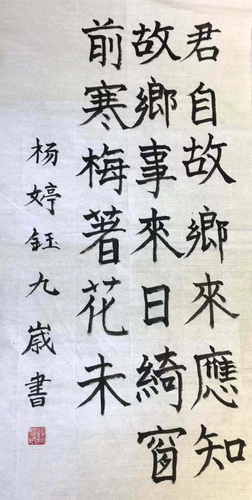 君自故鄉來應知
故鄉事來日綺窗
前寒梅著花未
杨婷钰九歲書